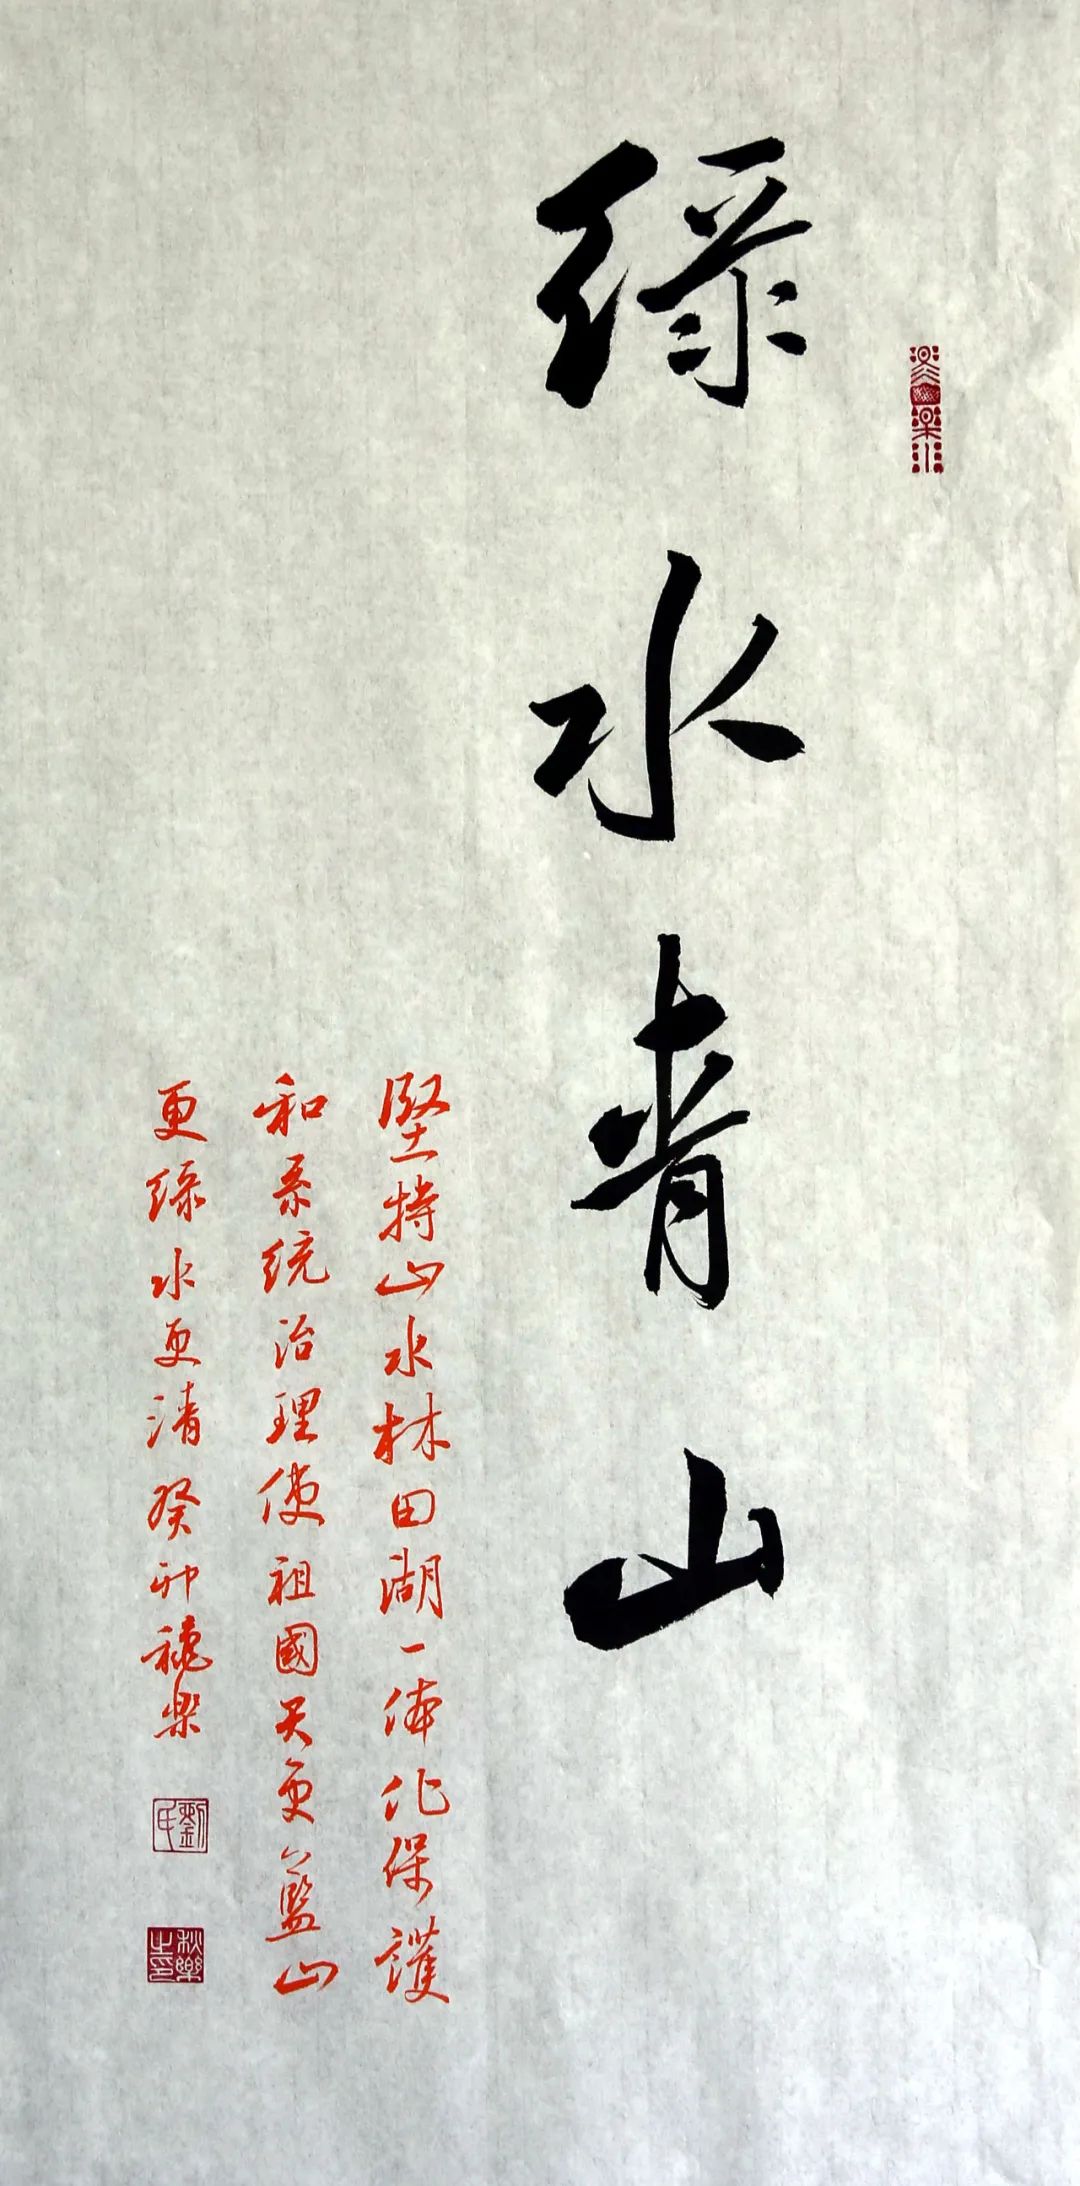 綠水青山
堅持山水林田湖一体化保護
和系統治理使祖國天更藍山
更綠水更清癸卯穐樂
劉氏
秋樂之印